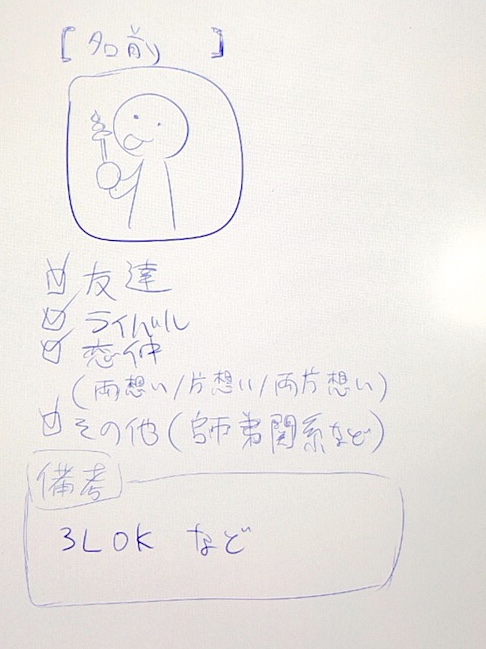 [名前]
友達
ライバル
恋仲
(両想い/片想い/両片想い)
その他(師弟関係など)
備考
3LOK など